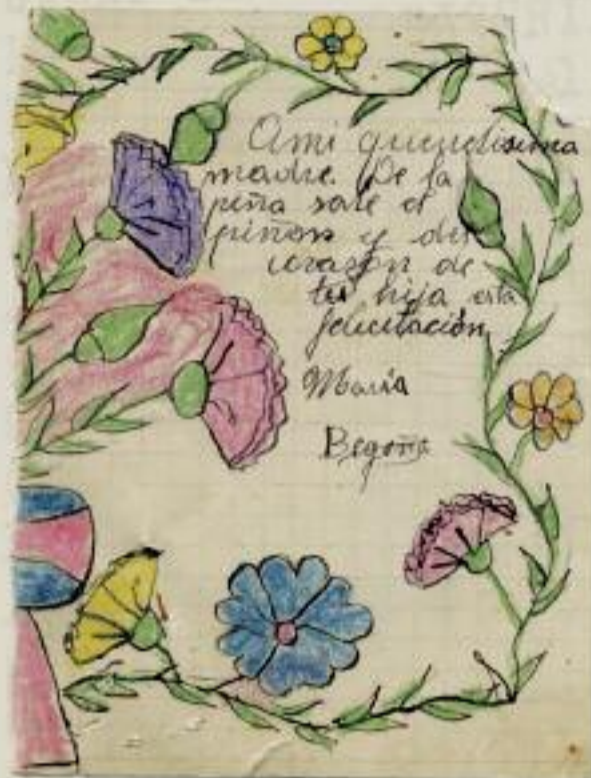 Ami queridisima
madre. De la
piña sale el
piñon y del
corazón de
tu hija esta
felicitación
María
Begoña